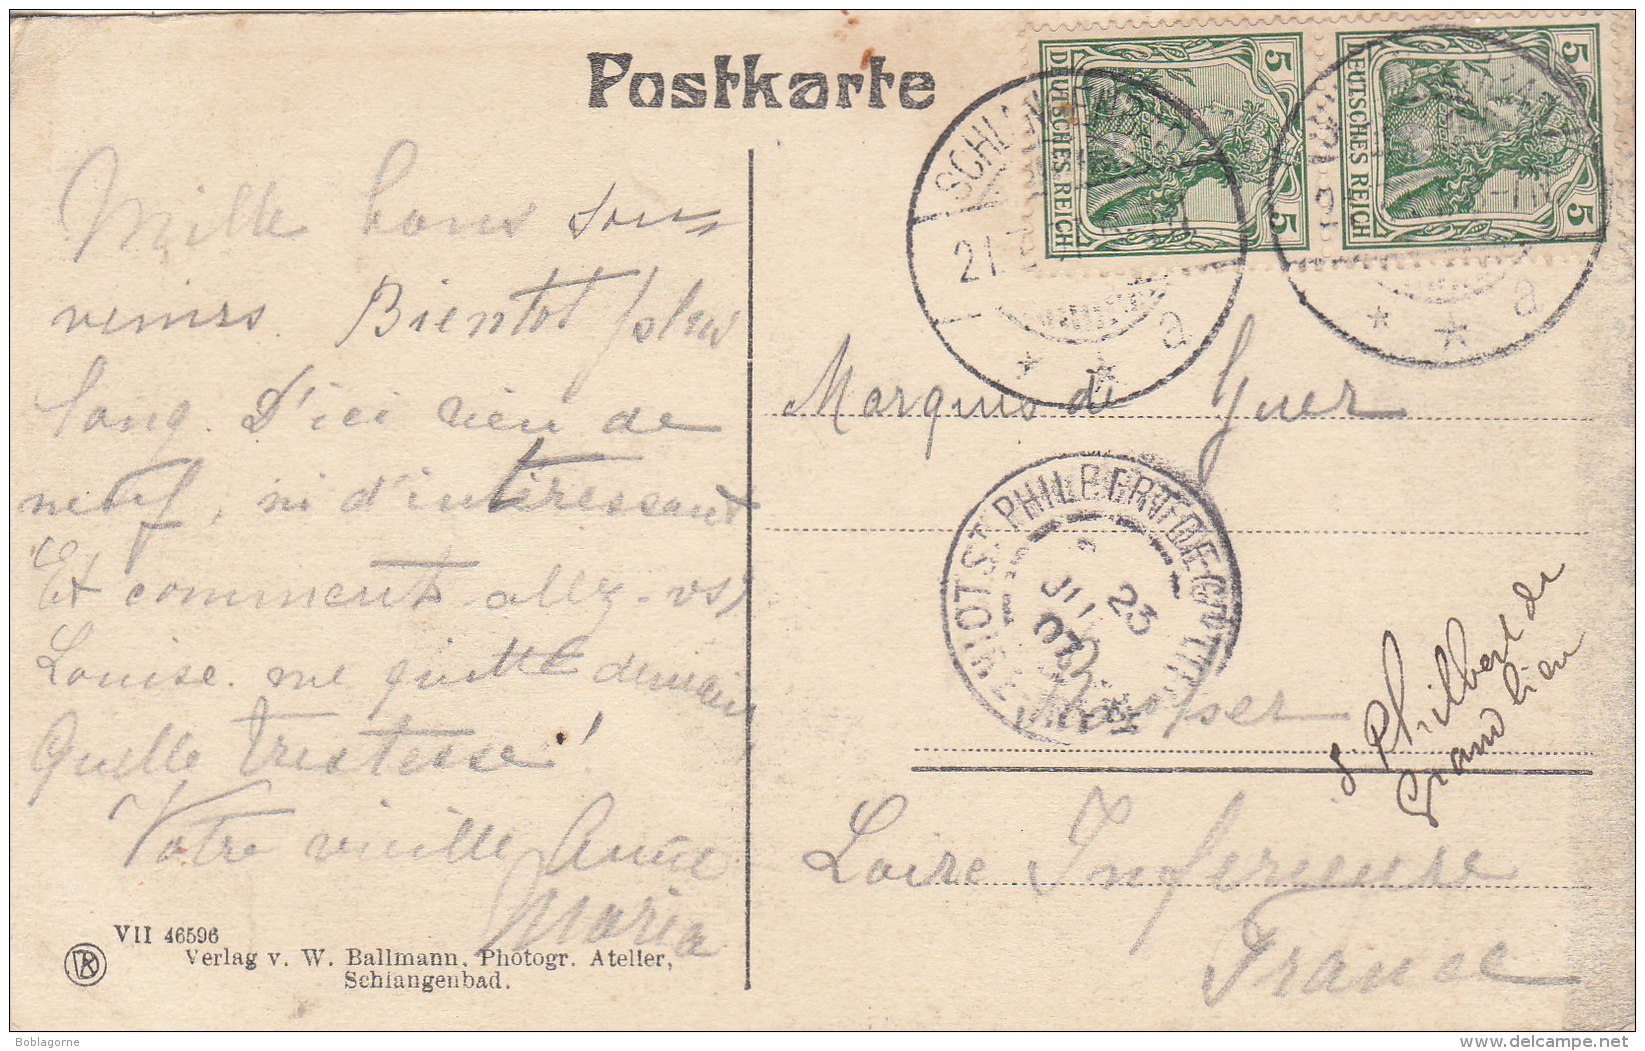 Postkarte
Mille bons sou-
venirs. Bientot plus
long. D'ici rien de
neuf, ni d'intéressant
Et comment allez-vs,
Louise me quitte demain
Quelle tristesse!
Votre vieille Amie
Maria
VII 46596
Verlag v. W. Ballmann, Photogr. Atelier,
Schlangenbad.
5 DEUTSCHES REICH 5
5 DEUTSCHES REICH 5
SCHLANGENBAD
21
* * a
* * a
Marquis de Guer
ST PHILBERT DE
23
07
S. Philbert de
Grand Lieu
Loire Inferieure
France
Boblagorne
www.delcampe.net